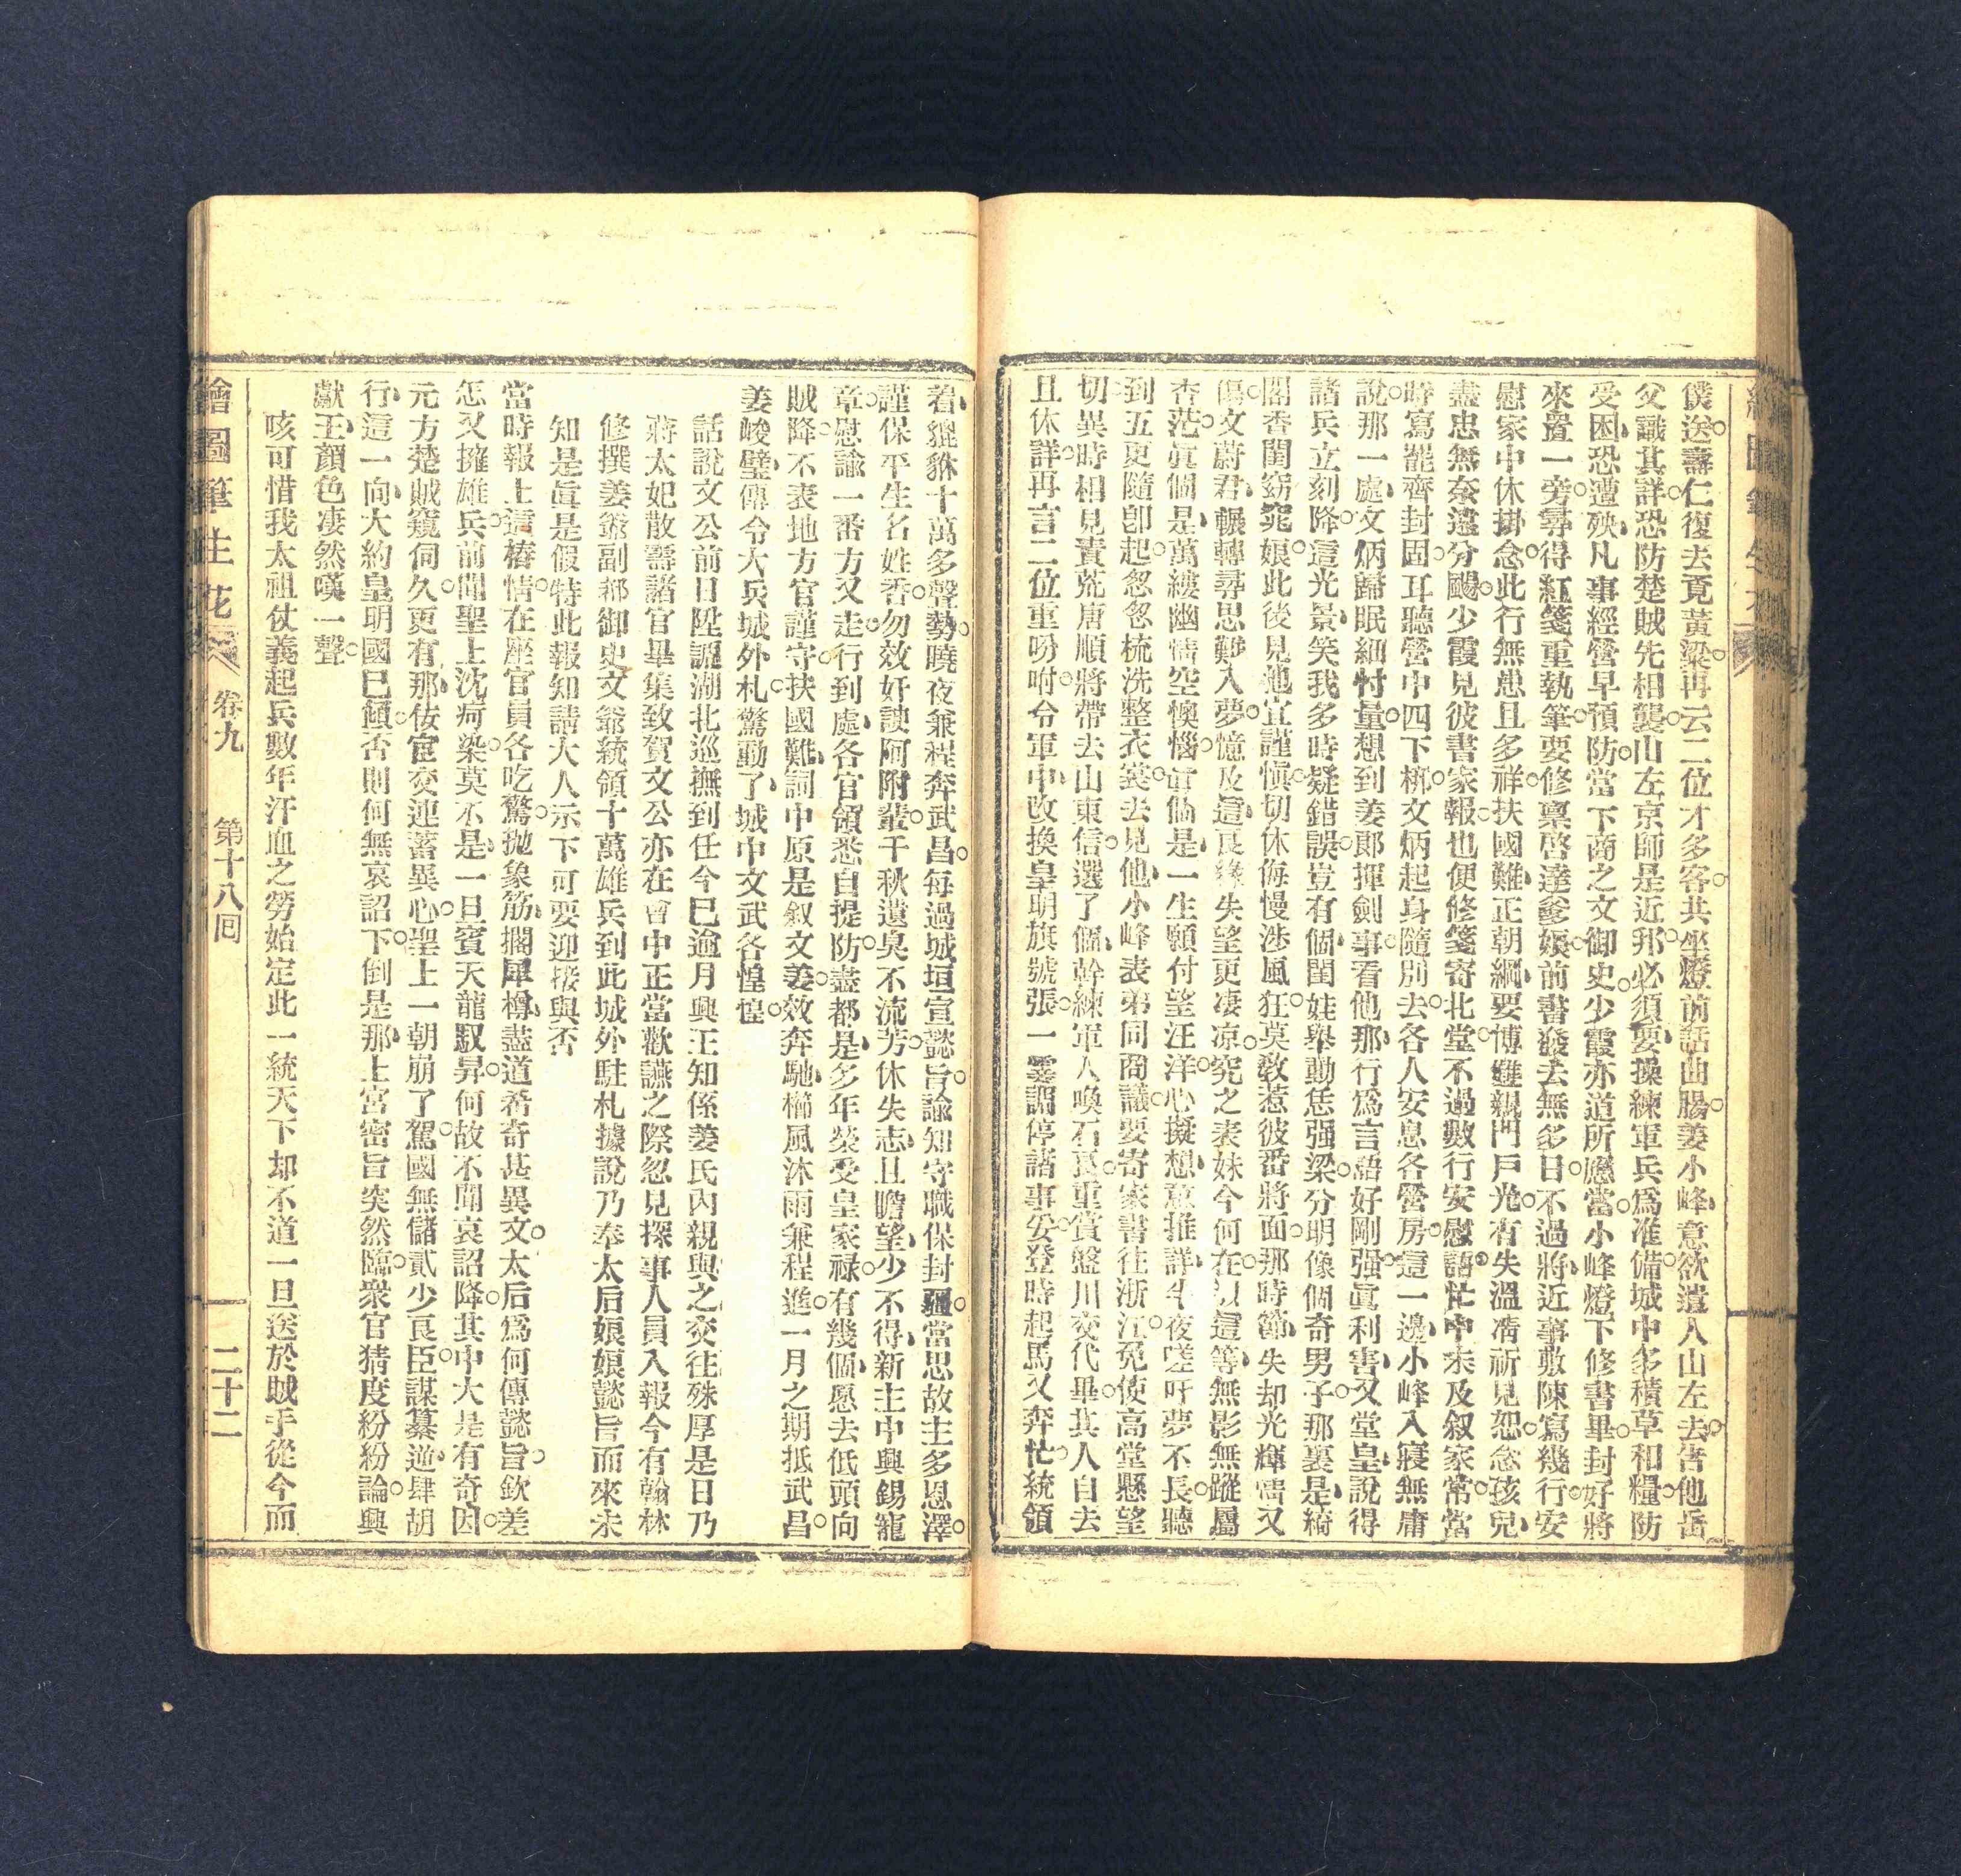 僕送壽仁復去覓黃粱再云二位才多客共坐燈前話曲腸姜小峰意欲遣人山左去告他岳
父識其詳恐防楚賊先相襲山左京師是近邦必須要操練軍兵爲准備城中多積草和糧防
受困恐遭殃凡事經營早預防當下商之文御史少霞亦道所應當小峰燈下修書畢封好將
來置一旁尋得紅箋重執筆要修稟啓達爹娘前書發去無多日不過將近事敷陳寫幾行安
慰家中休掛念此行無恙且多祥扶國難正朝綱要博雖親門戶光有失溫凊祈見恕念孩兒
盡忠無奈遠分颺少霞見彼書家報也便修箋寄北堂不過數行安慰語忙中未及叙家常當
時寫罷齊封固耳聽營中四下梆文炳起身隨別去各人安息各營房這一邊小峰入寢無庸
說那一處文炳歸眠細忖量想到姜郎揮劍事看他那行爲言語好剛强眞利害又堂皇說得
諸兵立刻降這光景笑我多時疑錯誤豈有個閨娃舉動恁强梁分明像個奇男子那裏是綺
閣香閨窈窕娘此後見他宜謹愼切休侮慢涉風狂莫敎惹彼番將面那時節失却光輝情又
傷文蔚君輾轉尋思難入夢憶及這良緣失望更凄凉究之表妹今何在這等無影無蹤屬
杳茫眞個是萬縷幽情空懊惱眞個是一生願付望汪洋心擬想意推詳半夜嗟吁夢不長聽
到五更隨卽起怱怱梳洗整衣裳去見他小峰表弟同商議要寄家書往浙江免使高堂懸望
切異時相見責荒唐順將帶去山東信選了個幹練軍人喚石良重賞盤川交代畢其人自去
且休詳再言二位重吩咐令軍中改換皇明旗號張一霎調停諸事妥登時起馬又奔忙統領
着貔貅十萬多聲勢曉夜兼程奔武昌每過城垣宣懿旨諭知守職保封疆當思故主多恩澤
謹保平生名姓香勿效奸諛阿附輩千秋遺臭不流芳休失志且瞻望少不得新主中興錫寵
章慰諭一番方又走行到處各官領悉自提防盡都是多年榮受皇家祿有幾個愿去低頭向
賊降不表地方官謹守扶國難詞中原是叙文姜效奔馳櫛風沐雨兼程進一月之期抵武昌
姜峻璧傳令大兵城外札驚動了城中文武各惶惶
話說文公前日陞調湖北巡撫到任今已逾月興王知係姜氏內親與之交往殊厚是日乃
蔣太妃散壽諸官畢集致賀文公亦在會中正當歡讌之際忽見探事人員入報今有翰林
修撰姜爺副都御史文爺統領十萬雄兵到此城外駐札據說乃奉太后娘娘懿旨而來未
知是眞是假特此報知請大人示下可要迎接與否
當時報上這樁情在座官員各吃驚拋象筯擱犀樽盡道希奇甚異文太后爲何傳懿旨欽差
怎又擁雄兵前聞聖上沈疴染莫不是一旦賓天龍馭昇何故不聞哀詔降其中大是有奇因
元方楚賊窺伺久更有那佞宦交連蓄異心聖上一朝崩了駕國無儲貳少良臣謀纂逆肆胡
行這一向大約皇明國已傾否則何無哀詔下倒是那上宮密旨突然臨衆官猜度紛紛論興
獻王顏色凄然嘆一聲
咳可惜我太祖仗義起兵數年汗血之勞始定此一統天下却不道一旦送於賊手從今而
繪圖筆生花 卷九 第十八回 二十二